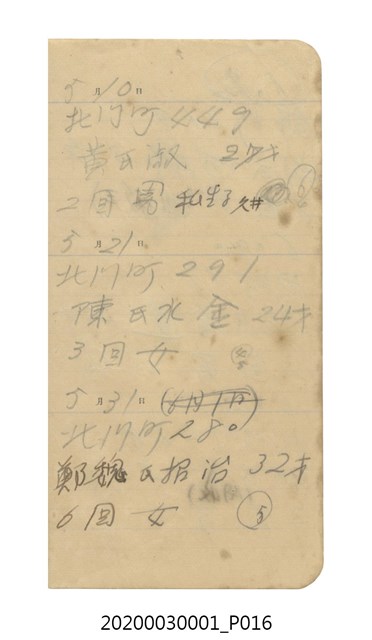 5月10日
北門町449
黃氏淑 27才
2回男 私生子
5月21日
北門町291
陳氏水金 24才
3回女
5月31日(6月1日)
北門町280
鄭魏氏招治 32才
6回女 5
20200030001_P016